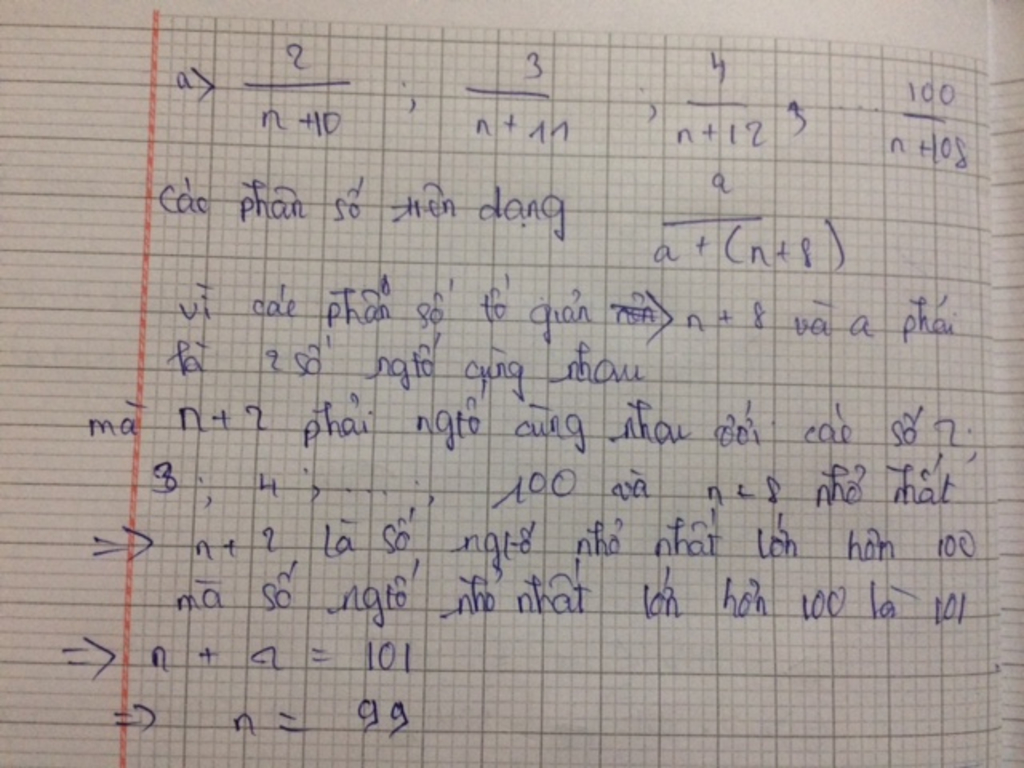 a> 2/(n+10) ; 3/(n+11) ; 4/(n+12) ; ... 100/(n+108)
các phân số trên dạng a/(a+(n+8))
vì các phân số tố giản => n + 8 và a phải
là 2 số ngtố cùng nhau
mà n+2 phải ngtố cùng nhau với các số 2;
3; 4; .....; 100 và n + 8 nhỏ nhất
=> n+2 là số ngtố nhỏ nhất lớn hơn 100
mà số ngtố nhỏ nhất lớn hơn 100 là 101
=> n + 2 = 101
=> n = 99